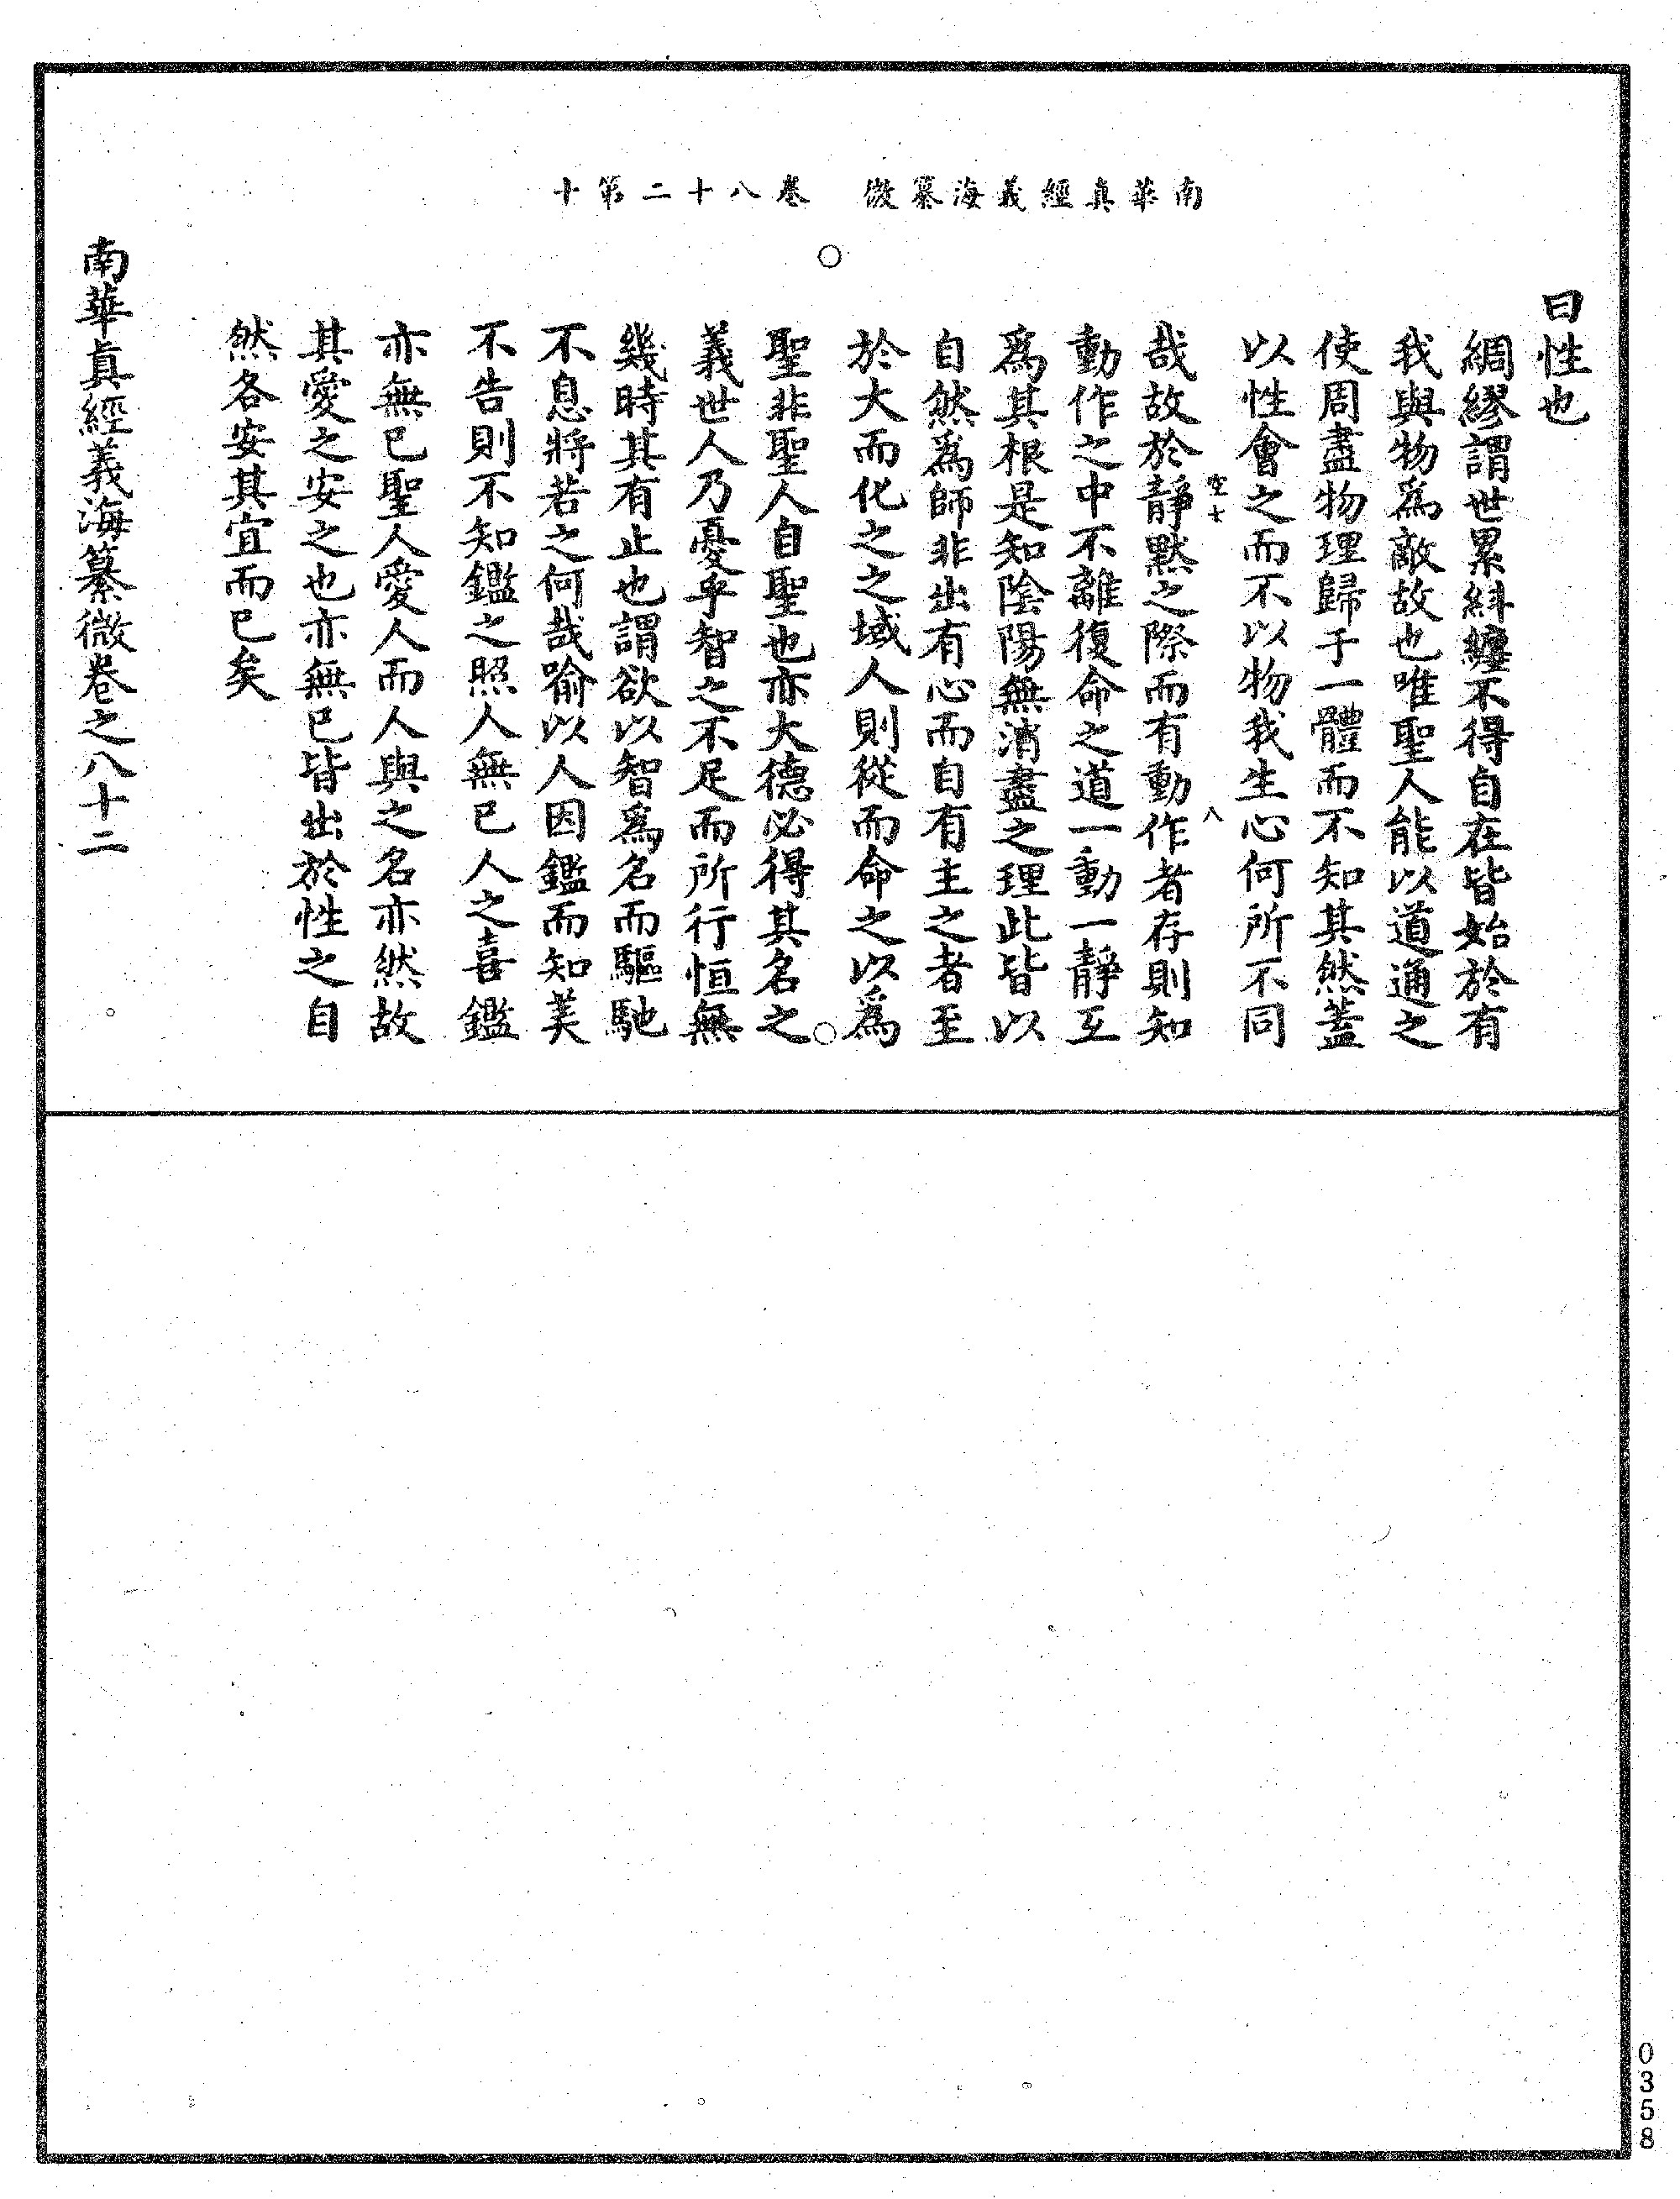 南華真經義海纂微　卷八十二第十
曰性也
綢繆謂世累糾纏不得自在皆始於有
我與物爲敵故也唯聖人能以道通之
使周盡物理歸于一體而不知其然蓋
以性會之而不以物我生心何所不同
八
哉故於靜默之際而有動作者存則知
動作之中不離復命之道一動一靜互
爲其根是知陰陽無消盡之理此皆以
自然爲師非出有心而自有主之者至
於大而化之之域人則從而命之以爲
聖非聖人自聖也亦大德必得其名之
義世人乃憂乎智之不足而所行恒無
幾時其有止也謂欲以智爲名而驅馳
不息將若之何哉喻以人因鑑而知美
不告則不知鑑之照人無已人之喜鑑
亦無已聖人愛人而人與之名亦然故
其愛之安之也亦無已皆出於性之自
然各安其宜而已矣
南華真經義海纂微卷之八十二
0358